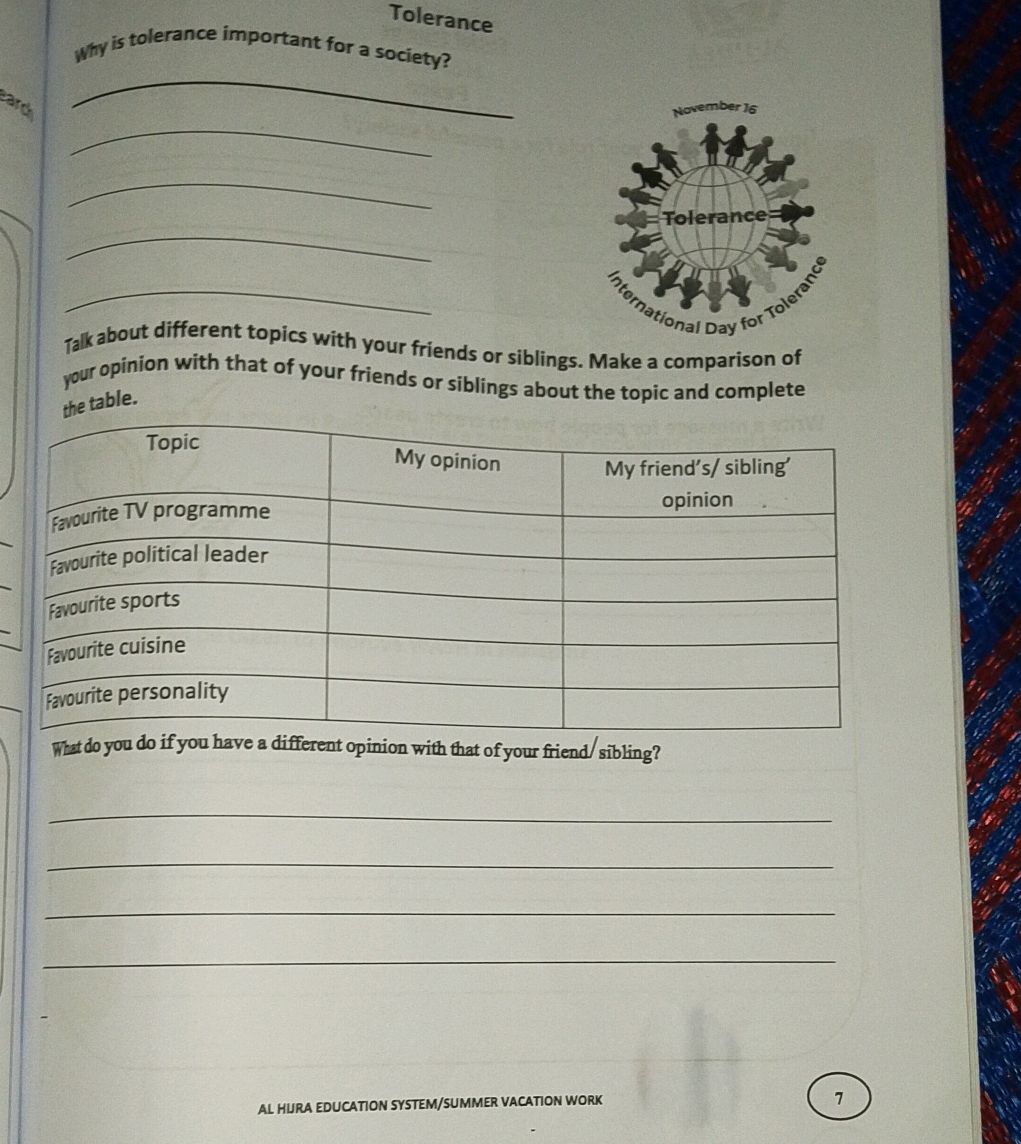 Tolerance
Why is tolerance important for a society?
November 16
Tolerance
International Day for Tolerance
Talk about different topics with your friends or siblings. Make a comparison of
your opinion with that of your friends or siblings about the topic and complete
the table.
Topic
My opinion
My friend's/ sibling'
opinion
Favourite TV programme
Favourite political leader
Favourite sports
Favourite cuisine
Favourite personality
What do you do if you have a different opinion with that of your friend/sibling?
AL HIJRA EDUCATION SYSTEM/SUMMER VACATION WORK
7